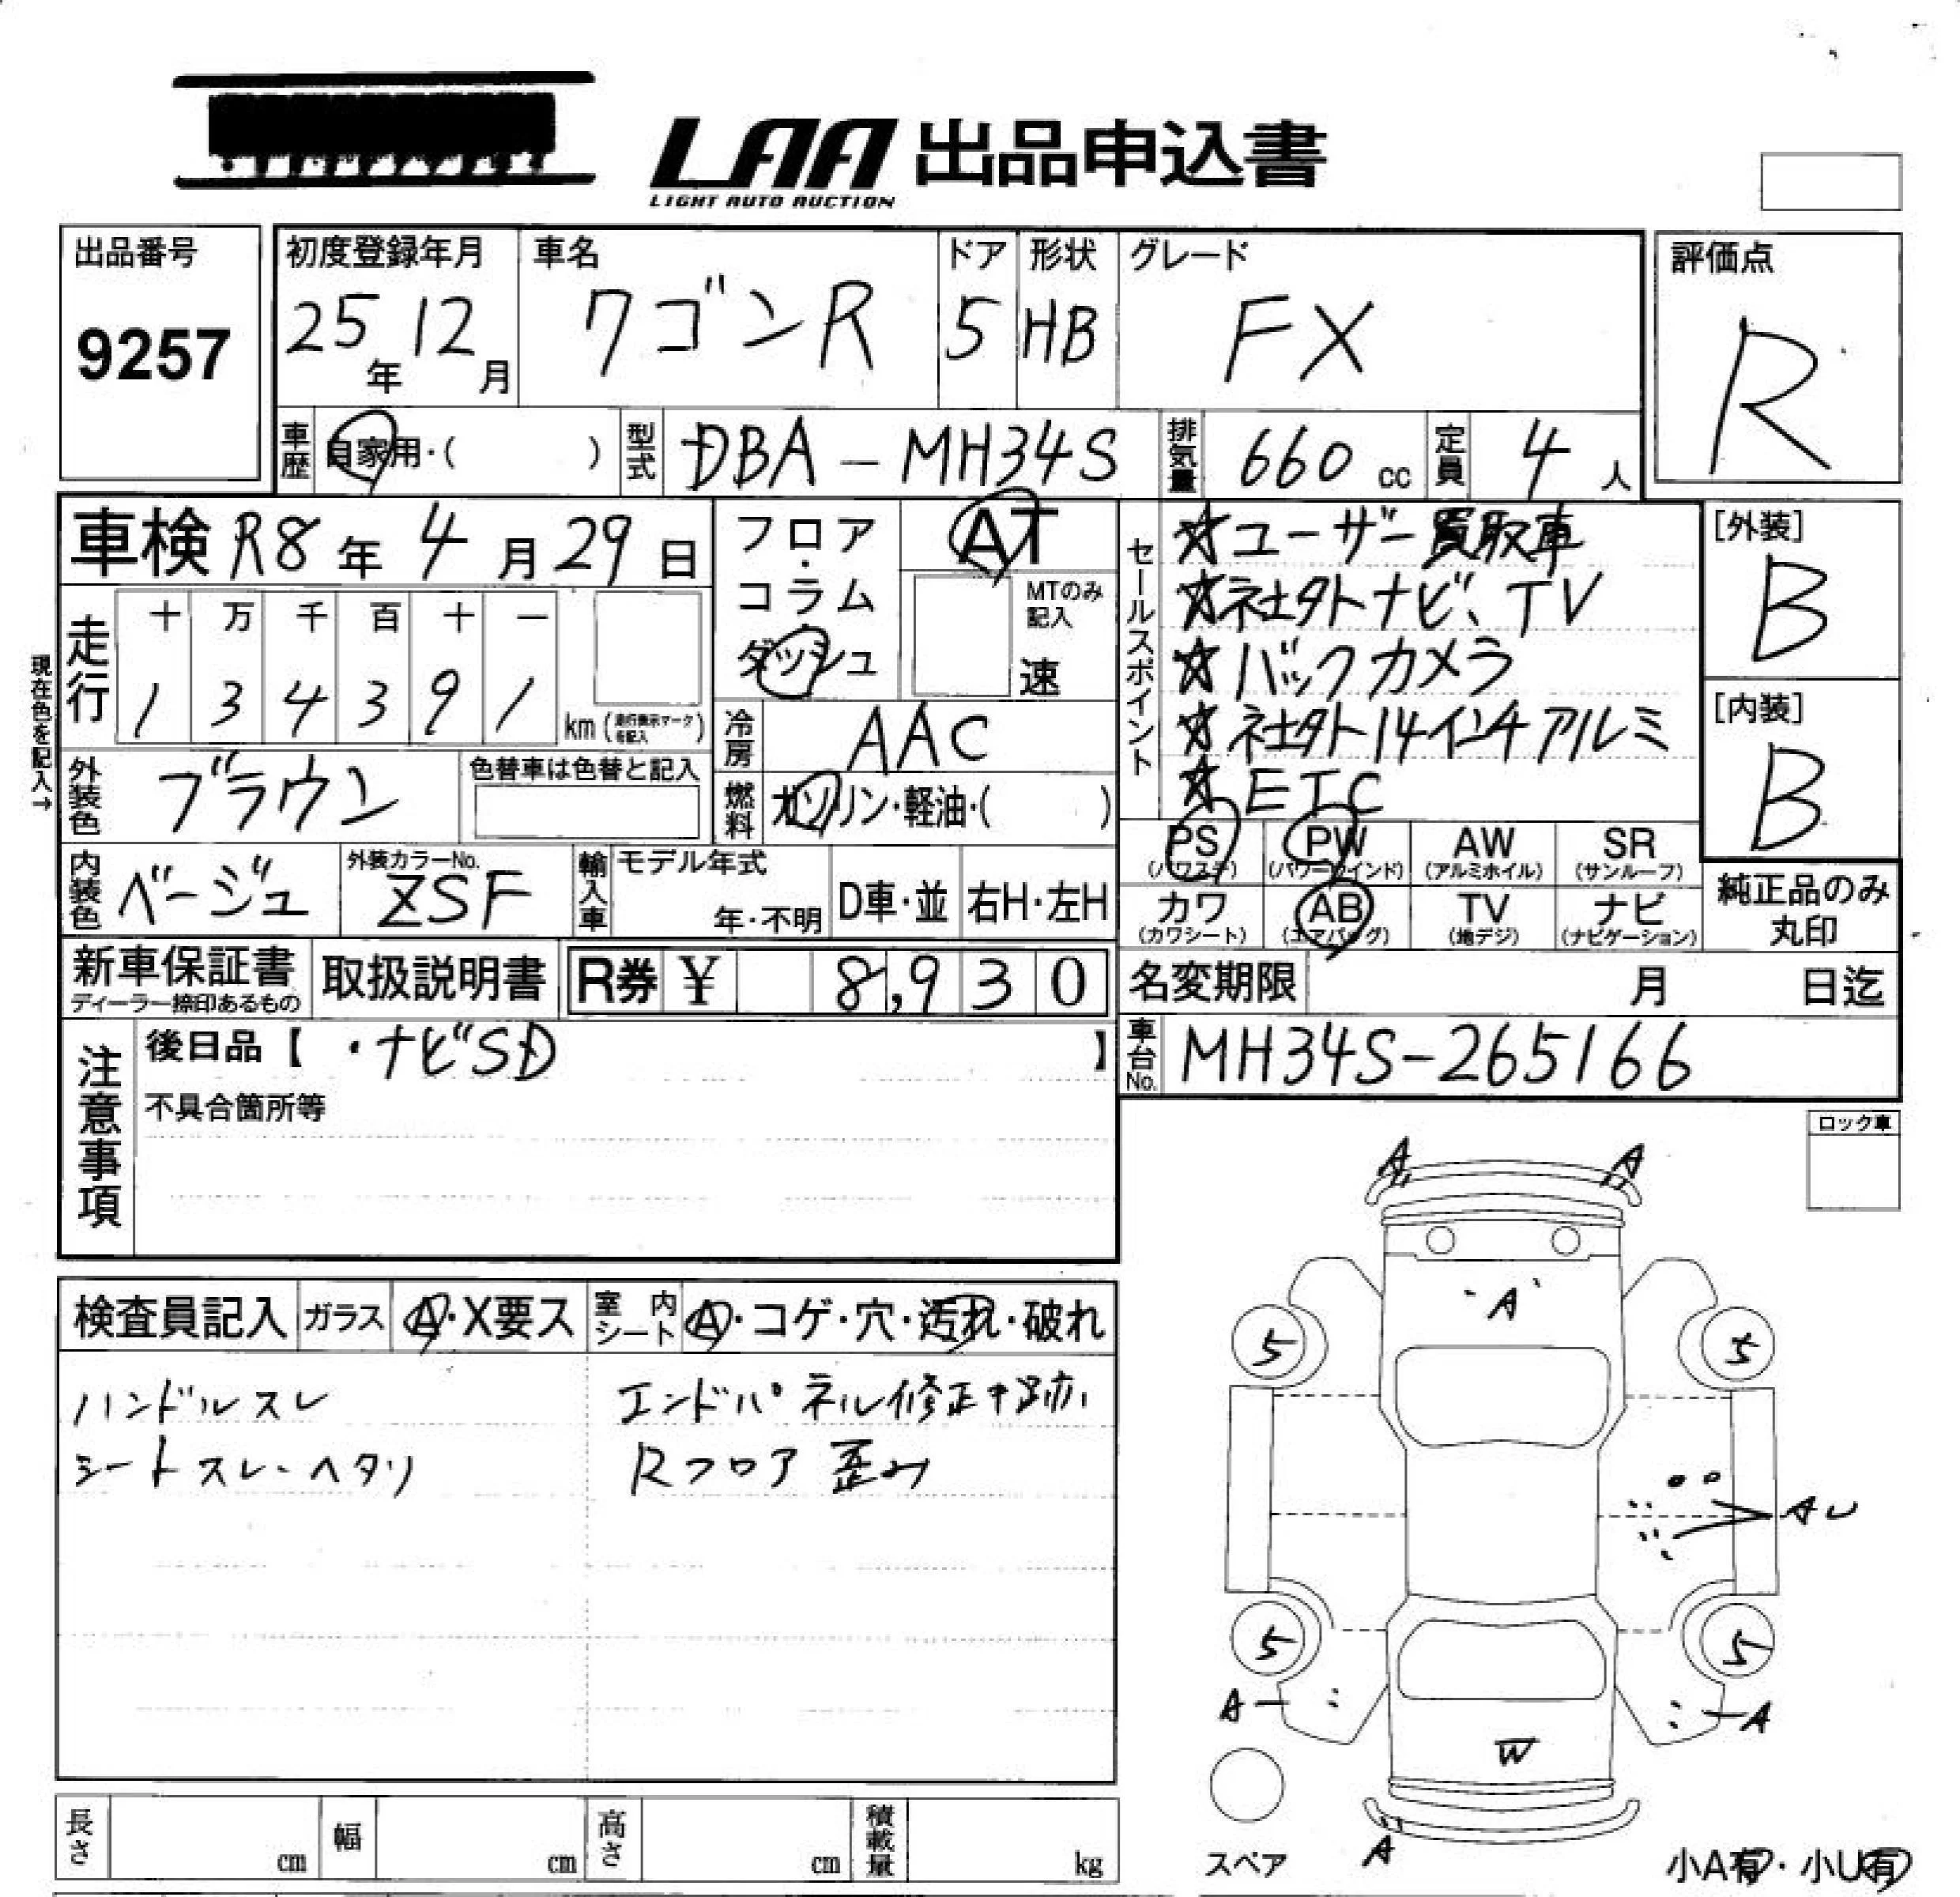 LAA 出品申込書
LIGHT AUTO AUCTION
出品番号
9257
初度登録年月
25年12月
車名
ワゴンR
ドア
5
形状
HB
グレード
FX
評価点
R
車歴
自家用・( )
型式
DBA-MH34S
排気量
660 cc
定員
4人
車検 R8年4月29日
フロア・コラム・ダッシュ
AT
MTのみ記入
速
セールスポイント
☆ユーザー買取車
☆社外ナビ、TV
☆バックカメラ
☆社外14インチアルミ
☆ETC
[外装]
B
[内装]
B
現在色を記入→
走行
十 万 千 百 十 一
1 3 4 3 9 1
km(走行表示マークを記入)
冷房
AAC
外装色
ブラウン
色替車は色替と記入
燃料
ガソリン・軽油・( )
内装色
ベージュ
外装カラーNo.
ZSF
輸入車
モデル年式
年・不明
D車・並
右H・左H
PS
(パワステ)
PW
(パワーウインド)
AW
(アルミホイル)
SR
(サンルーフ)
カワ
(カワシート)
AB
(エアバッグ)
TV
(地デジ)
ナビ
(ナビゲーション)
純正品のみ
丸印
新車保証書
ディーラー捺印あるもの
取扱説明書
R券 ¥ 8,930
名変期限 月 日迄
注意事項
後日品【 ・ナビSD 】
不具合箇所等
車台No.
MH34S-265166
ロック車
検査員記入
ガラス
A・X要ス
室内シート
A・コゲ・穴・汚れ・破れ
ハンドルスレ
シートスレ・ヘタリ
エンドパネル修正キ跡
Rフロア歪み
A A
A
5 5
AU
5 5
A A
W
A
スペア
小A有・小U有
長さ cm
幅 cm
高さ cm
積載量 kg